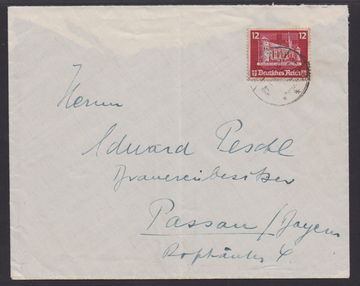 12 12
Deutsches Reich
Herrn
Eduard Peschl
Brauereibesitzer
Passau / Bayern